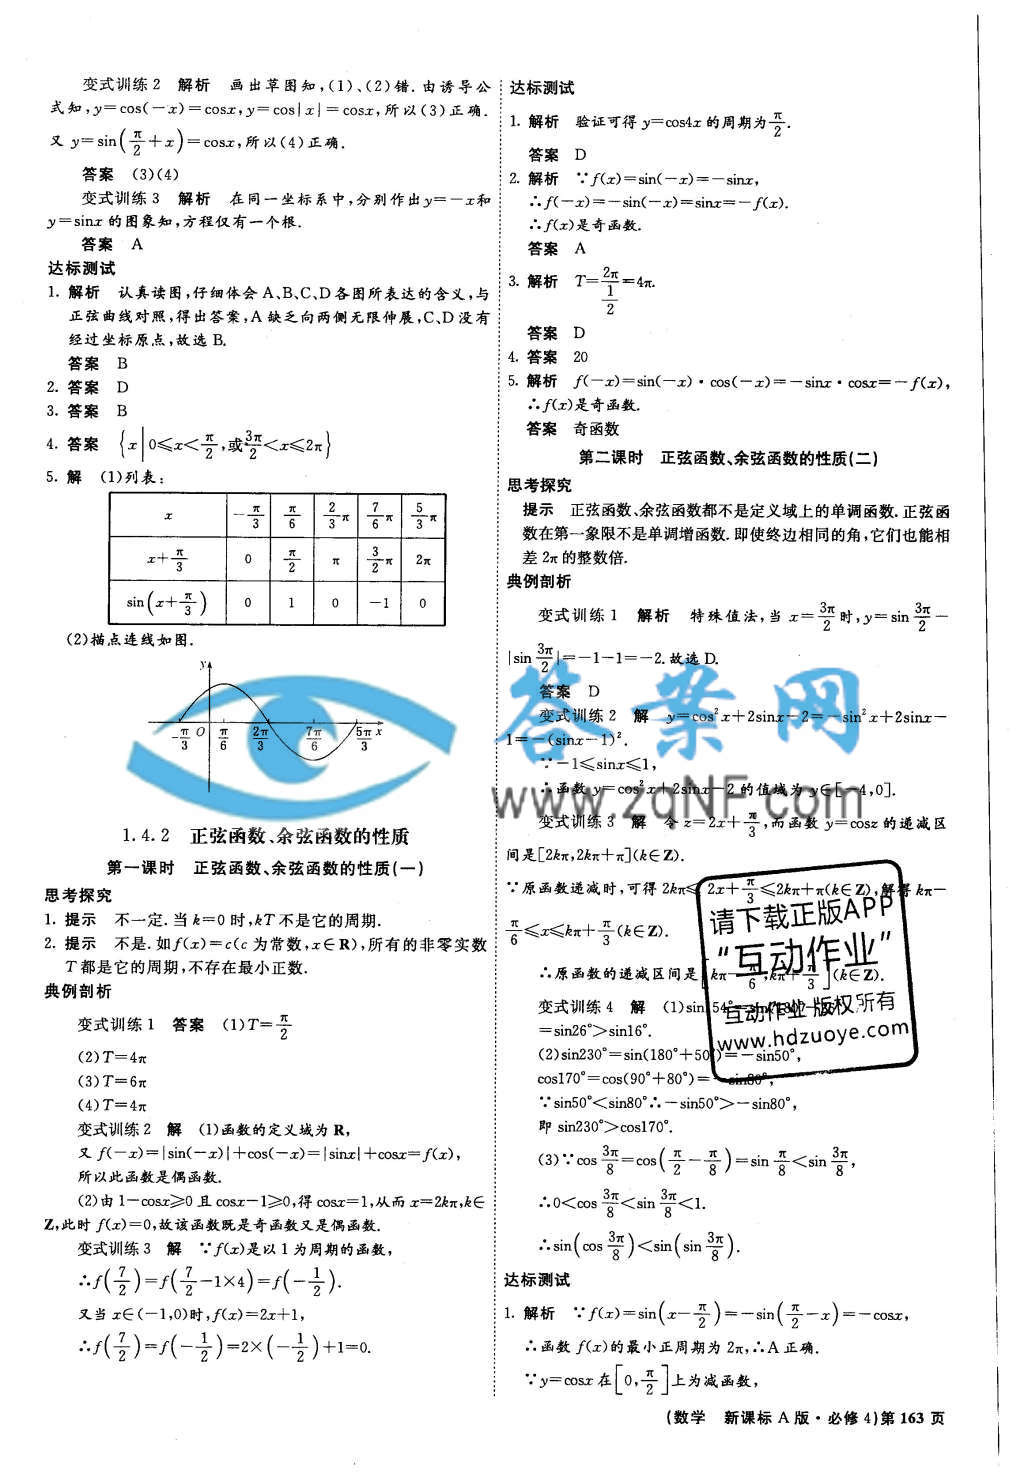 变式训练2 解析 画出草图知,(1)、(2)错.由诱导公
式知,y=cos(-x)=cosx,y=cos|x|=cosx,所以(3)正确.
又 y=sin(π/2+x)=cosx,所以(4)正确.
答案 (3)(4)
变式训练3 解析 在同一坐标系中,分别作出y=-x和
y=sinx的图象知,方程仅有一个根.
答案 A
达标测试
1. 解析 认真读图,仔细体会A、B、C、D各图所表达的含义,与
正弦曲线对照,得出答案,A缺乏向两侧无限伸展,C、D没有
经过坐标原点,故选B.
答案 B
2. 答案 D
3. 答案 B
4. 答案 {x|0≤x<π/2,或3π/2<x≤2π}
5. 解 (1)列表:
x -π/3 π/6 2/3π 7/6π 5/3π
x+π/3 0 π/2 π 3/2π 2π
sin(x+π/3) 0 1 0 -1 0
(2)描点连线如图.
y
-π/3 O π/6 2π/3 7π/6 5π/3 x
1.4.2 正弦函数、余弦函数的性质
第一课时 正弦函数、余弦函数的性质(一)
思考探究
1. 提示 不一定.当k=0时,kT不是它的周期.
2. 提示 不是.如f(x)=c(c为常数,x∈R),所有的非零实数
T都是它的周期,不存在最小正数.
典例剖析
变式训练1 答案 (1)T=π/2
(2)T=4π
(3)T=6π
(4)T=4π
变式训练2 解 (1)函数的定义域为R,
又f(-x)=|sin(-x)|+cos(-x)=|sinx|+cosx=f(x),
所以此函数是偶函数.
(2)由1-cosx≥0且cosx-1≥0,得cosx=1,从而x=2kπ,k∈
Z,此时f(x)=0,故该函数既是奇函数又是偶函数.
变式训练3 解 ∵f(x)是以1为周期的函数,
∴f(7/2)=f(7/2-1×4)=f(-1/2).
又当x∈(-1,0)时,f(x)=2x+1,
∴f(7/2)=f(-1/2)=2×(-1/2)+1=0.
达标测试
1. 解析 验证可得y=cos4x的周期为π/2.
答案 D
2. 解析 ∵f(x)=sin(-x)=-sinx,
∴f(-x)=-sin(-x)=sinx=-f(x).
∴f(x)是奇函数.
答案 A
3. 解析 T=2π/(1/2)=4π.
答案 D
4. 答案 20
5. 解析 f(-x)=sin(-x)·cos(-x)=-sinx·cosx=-f(x),
∴f(x)是奇函数.
答案 奇函数
第二课时 正弦函数、余弦函数的性质(二)
思考探究
提示 正弦函数、余弦函数都不是定义域上的单调函数.正弦函
数在第一象限不是单调增函数.即使终边相同的角,它们也能相
差2π的整数倍.
典例剖析
变式训练1 解析 特殊值法,当x=3π/2时,y=sin3π/2-
|sin3π/2|=-1-1=-2.故选D.
答案 D
变式训练2 解 y=cos²x+2sinx-2=-sin²x+2sinx-
1=-(sinx-1)².
∵-1≤sinx≤1,
∴函数y=cos²x+2sinx-2的值域为y∈[-4,0].
答案网
www.zqNF.com
变式训练3 解 令z=2x+π/3,而函数y=cosz的递减区
间是[2kπ,2kπ+π](k∈Z).
∵原函数递减时,可得2kπ≤2x+π/3≤2kπ+π(k∈Z),解得kπ-
π/6≤x≤kπ+π/3(k∈Z).
∴原函数的递减区间是[kπ-π/6,kπ+π/3](k∈Z).
请下载正版APP
“互动作业”
互动作业 版权所有
www.hdzuoye.com
变式训练4 解 (1)sin
=sin26°>sin16°.
(2)sin230°=sin(180°+50°)=-sin50°,
cos170°=cos(90°+80°)=-sin80°,
∵sin50°<sin80°∴-sin50°>-sin80°,
即sin230°>cos170°.
(3)∵cos3π/8=cos(π/2-π/8)=sinπ/8<sin3π/8,
∴0<cos3π/8<sin3π/8<1.
∴sin(cos3π/8)<sin(sin3π/8).
达标测试
1. 解析 ∵f(x)=sin(x-π/2)=-sin(π/2-x)=-cosx,
∴函数f(x)的最小正周期为2π,∴A正确.
∵y=cosx在[0,π/2]上为减函数,
(数学 新课标A版·必修4)第163页